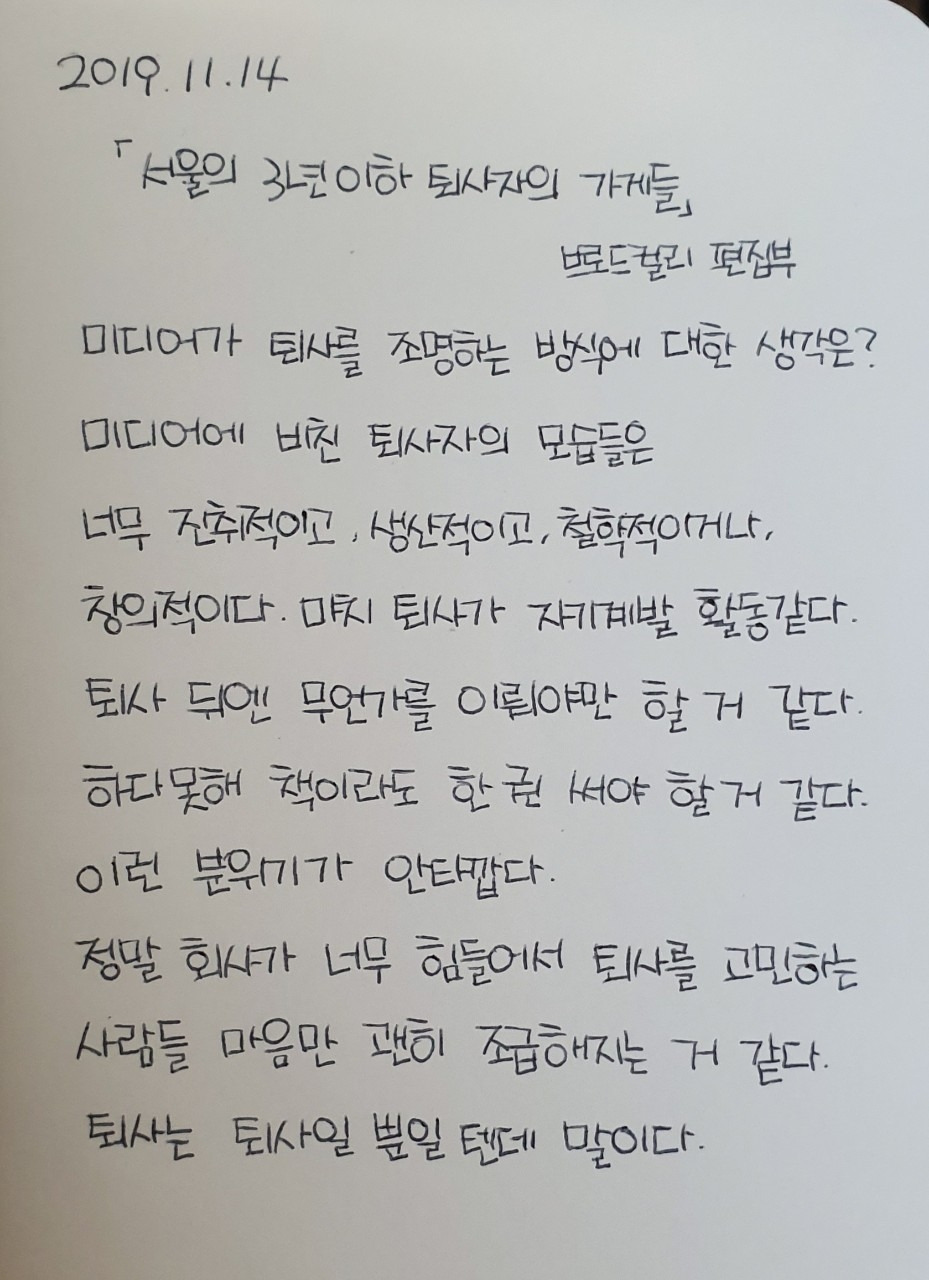 2019. 11. 14
「서울의 3년 이하 퇴사자의 가게들」
브로드컬리 편집부
미디어가 퇴사를 조명하는 방식에 대한 생각은?
미디어에 비친 퇴사자의 모습들은
너무 진취적이고, 생산적이고, 철학적이거나,
창의적이다. 마치 퇴사가 자기계발 활동같다.
퇴사 뒤엔 무언가를 이뤄야만 할 거 같다.
하다못해 책이라도 한 권 써야 할 거 같다.
이런 분위기가 안타깝다.
정말 회사가 너무 힘들어서 퇴사를 고민하는
사람들 마음만 괜히 조급해지는 거 같다.
퇴사는 퇴사일 뿐일 텐데 말이다.